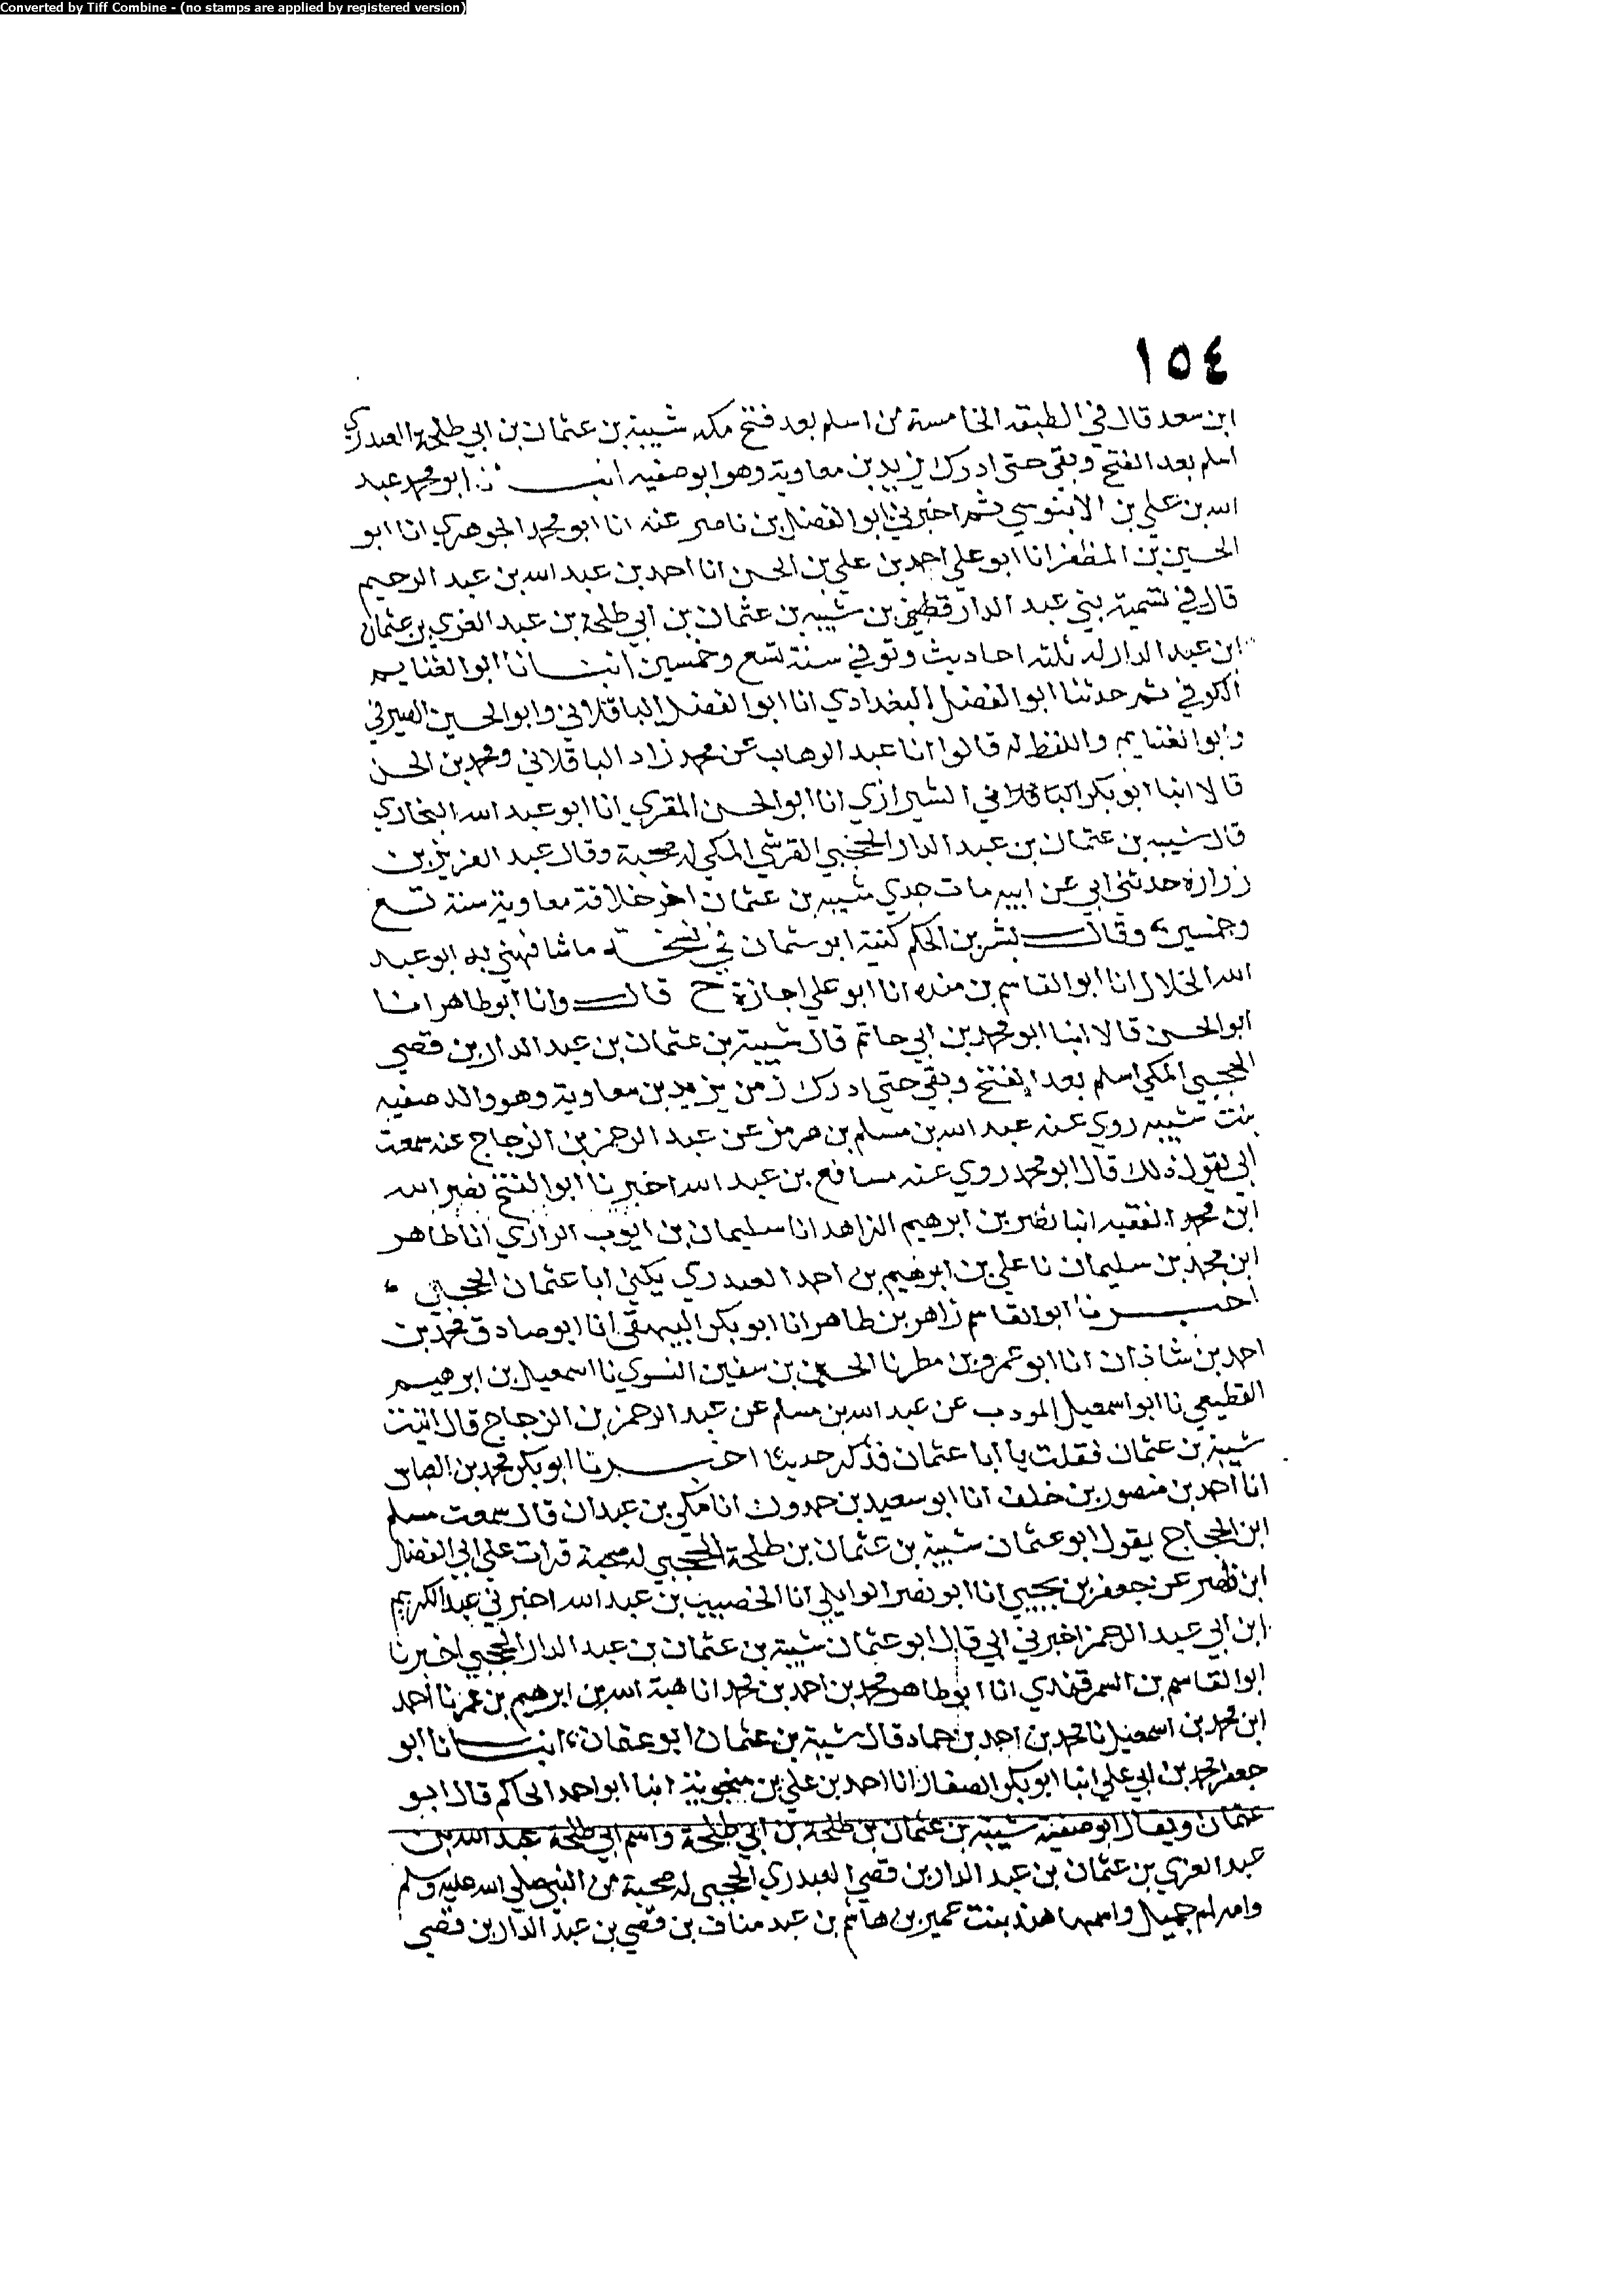 Converted by Tiff Combine - (no stamps are applied by registered version)
١٥٤
ابن سعد قال في الطبقه الخامسة من اسلم بعد فتح مكه شيبة بن عثمان بن ابي طلحة العبدري
اسلم بعد الفتح وبقي حتى ادرك يزيد بن معاوية وهو ابو صفيه انبـــ نا ابو محمد عبد
الله بن علي بن الابنوسي ثم اخبرني ابو الفضل بن ناصر عنه انا ابو محمد الجوهري انا ابو
الحسين بن المظفر انا ابو علي احمد بن علي بن الحسن انا احمد بن عبد الله بن عبد الرحيم
قال في تسمية بني عبد الدار قطيفن بن شيبه بن عثمان بن ابي طلحة بن عبد العزي بن عثمان
ابن عبد الدار له ثلثه احاديث وتوفي سنة تسع وخمسين انبــانا ابو الغنايم
الكوفي ثم حدثنا ابو الفضل البغدادي انا ابو الفضل الباقلاني وابو الحسين الصيرفي
وابو الغنايم واللفظ له قالوا انا عبد الوهاب عن محمد زاد الباقلاني ومحمد بن الحسن
قالا انبا ابو بكر الباقلاني الشيرازي انا ابو الحسن المقري انا ابو عبد الله البخاري
قال شيبه بن عثمان بن عبد الدار الحجبي القرشي المكي له صحبة وقال عبد العزيز بن
زرارة حدثني ابي عن ابيه مات جدي شيبه بن عثمان اخر خلافة معاوية سنة تسع
وخمسين وقال بشر بن الحكم كنية ابو عثمان في نسخة ما شافهني به ابو عبد
الله الخلال انا ابو القاسم بن منده انا ابو علي اجازة ح قال وانا ابو طاهر انا
ابو الحسن قالا انبا ابو محمد بن ابي حاتم قال شيبة بن عثمان بن عبد الدار بن قصي
الحجبي المكي اسلم بعد الفتح وبقي حتي ادرك زمن يزيد بن معاوية وهو والد صفيه
بنت شيبه روي عنه عبد الله بن مسلم بن هرمز عن عبد الرحمن بن الزجاج عنه سمعت
ابي يقول ذلك قال ابو محمد روي عنه مسافع بن عبد الله اخبرنا ابو الفتح نصر الله
ابن محمد الفقيه انبا نصر بن ابرهيم الزاهد انا سليمان بن ايوب الرازي انا طاهر
ابن محمد بن سليمان نا علي بن ابرهيم بن احمد العبدري يكني ابا عثمان الحجبي
اخبــرنا ابو القاسم زاهر بن طاهر انا ابو بكر البيهقي انا ابو صادق محمد بن
احمد بن شاذان انا ابو عمرو بن مطر نا الحسن بن سفين النسوي نا اسمعيل بن ابرهيم
القطيعي نا ابو اسمعيل المودب عن عبد الله بن مسلم عن عبد الرحمن بن الزجاج قال اتيت
شيبة بن عثمان فقلت يا ابا عثمان فذكر حديثا اخبــرنا ابو بكر محمد بن العباس
انا احمد بن منصور بن خلف انا ابو سعيد بن حمدون انا مكي بن عبدان قال سمعت مسلم
ابن الحجاج يقول ابو عثمان شيبة بن عثمان بن طلحة الحجبي له صحبة قرات علي ابي الفضل
ابن ناصر عن جعفر بن يحيي انا ابو نصر الوايلي انا الخصيب بن عبد الله اخبرني عبد الكريم
ابن ابي عبد الرحمن اخبرني ابي قال ابو عثمان شيبة بن عثمان بن عبد الدار الحجبي اخبرنا
ابو القاسم بن السمرقندي انا ابو طاهر محمد بن احمد بن محمد انا هبة الله بن ابرهيم بن عمر نا احمد
ابن محمد بن اسمعيل نا محمد بن احمد بن حماد قال شيبة بن عثمان ابو عثمان انبــانا ابو
جعفر محمد بن ابي علي انبا ابو بكر الصفار انا احمد بن علي بن منجوية انبا ابو احمد الحاكم قال ابو
عثمان ويقال ابو صفية شيبة بن عثمان بن طلحة بن ابي طلحة واسم ابي طلحة عبد الله بن
عبد العزي بن عثمان بن عبد الدار بن قصي العبدري الحجبي له صحبة من النبي صلي الله عليه وسلم
وامه ام جميل واسمها هند بنت عمير بن هاشم بن عبد مناف بن قصي بن عبد الدار بن قصي